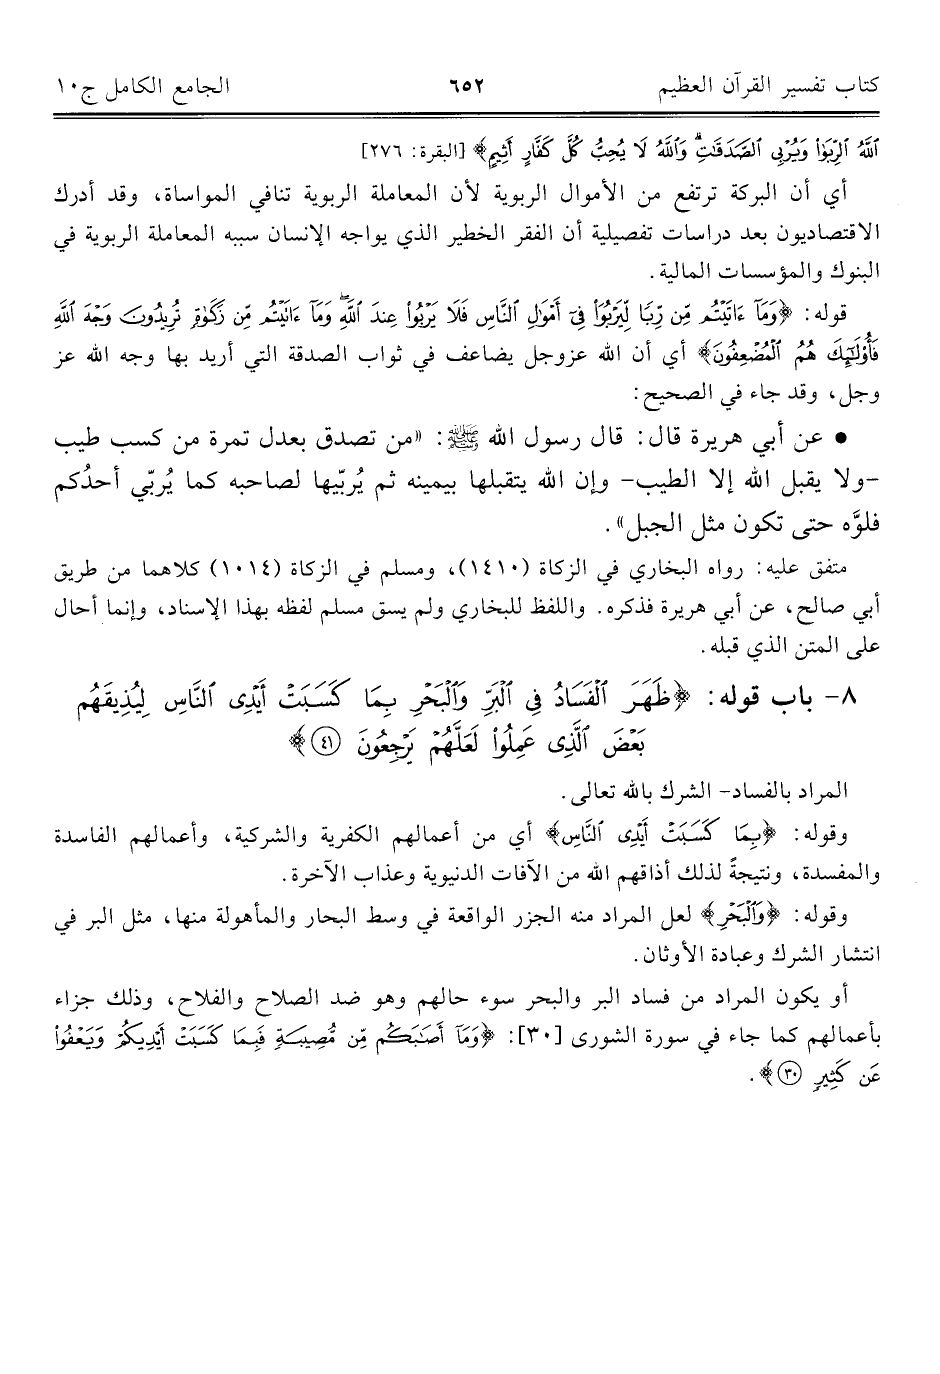 كتاب تفسير القرآن العظيم ٦٥٢ الجامع الكامل ج١٠
ٱللَّهُ ٱلرِّبَوٰا۟ وَيُرْبِى ٱلصَّدَقَٰتِ ۗ وَٱللَّهُ لَا يُحِبُّ كُلَّ كَفَّارٍ أَثِيمٍ﴾ [البقرة: ٢٧٦]
أي أن البركة ترتفع من الأموال الربوية لأن المعاملة الربوية تنافي المواساة، وقد أدرك
الاقتصاديون بعد دراسات تفصيلية أن الفقر الخطير الذي يواجه الإنسان سببه المعاملة الربوية في
البنوك والمؤسسات المالية.
قوله: ﴿وَمَآ ءَاتَيْتُم مِّن رِّبًا لِّيَرْبُوَا۟ فِىٓ أَمْوَٰلِ ٱلنَّاسِ فَلَا يَرْبُوا۟ عِندَ ٱللَّهِ ۖ وَمَآ ءَاتَيْتُم مِّن زَكَوٰةٍ تُرِيدُونَ وَجْهَ ٱللَّهِ
فَأُو۟لَٰٓئِكَ هُمُ ٱلْمُضْعِفُونَ﴾ أي أن الله عزوجل يضاعف في ثواب الصدقة التي أريد بها وجه الله عز
وجل، وقد جاء في الصحيح:
• عن أبي هريرة قال: قال رسول الله ﷺ: «من تصدق بعدل تمرة من كسب طيب
-ولا يقبل الله إلا الطيب- وإن الله يتقبلها بيمينه ثم يُربّيها لصاحبه كما يُربّي أحدُكم
فلوَّه حتى تكون مثل الجبل».
متفق عليه: رواه البخاري في الزكاة (١٤١٠)، ومسلم في الزكاة (١٠١٤) كلاهما من طريق
أبي صالح، عن أبي هريرة فذكره. واللفظ للبخاري ولم يسق مسلم لفظه بهذا الإسناد، وإنما أحال
على المتن الذي قبله.
٨- باب قوله: ﴿ظَهَرَ ٱلْفَسَادُ فِى ٱلْبَرِّ وَٱلْبَحْرِ بِمَا كَسَبَتْ أَيْدِى ٱلنَّاسِ لِيُذِيقَهُم
بَعْضَ ٱلَّذِى عَمِلُوا۟ لَعَلَّهُمْ يَرْجِعُونَ ٤١﴾
المراد بالفساد- الشرك بالله تعالى.
وقوله: ﴿بِمَا كَسَبَتْ أَيْدِى ٱلنَّاسِ﴾ أي من أعمالهم الكفرية والشركية، وأعمالهم الفاسدة
والمفسدة، ونتيجةً لذلك أذاقهم الله من الآفات الدنيوية وعذاب الآخرة.
وقوله: ﴿وَٱلْبَحْرِ﴾ لعل المراد منه الجزر الواقعة في وسط البحار والمأهولة منها، مثل البر في
انتشار الشرك وعبادة الأوثان.
أو يكون المراد من فساد البر والبحر سوء حالهم وهو ضد الصلاح والفلاح، وذلك جزاء
بأعمالهم كما جاء في سورة الشورى [٣٠]: ﴿وَمَآ أَصَٰبَكُم مِّن مُّصِيبَةٍ فَبِمَا كَسَبَتْ أَيْدِيكُمْ وَيَعْفُوا۟
عَن كَثِيرٍ ٣٠﴾.